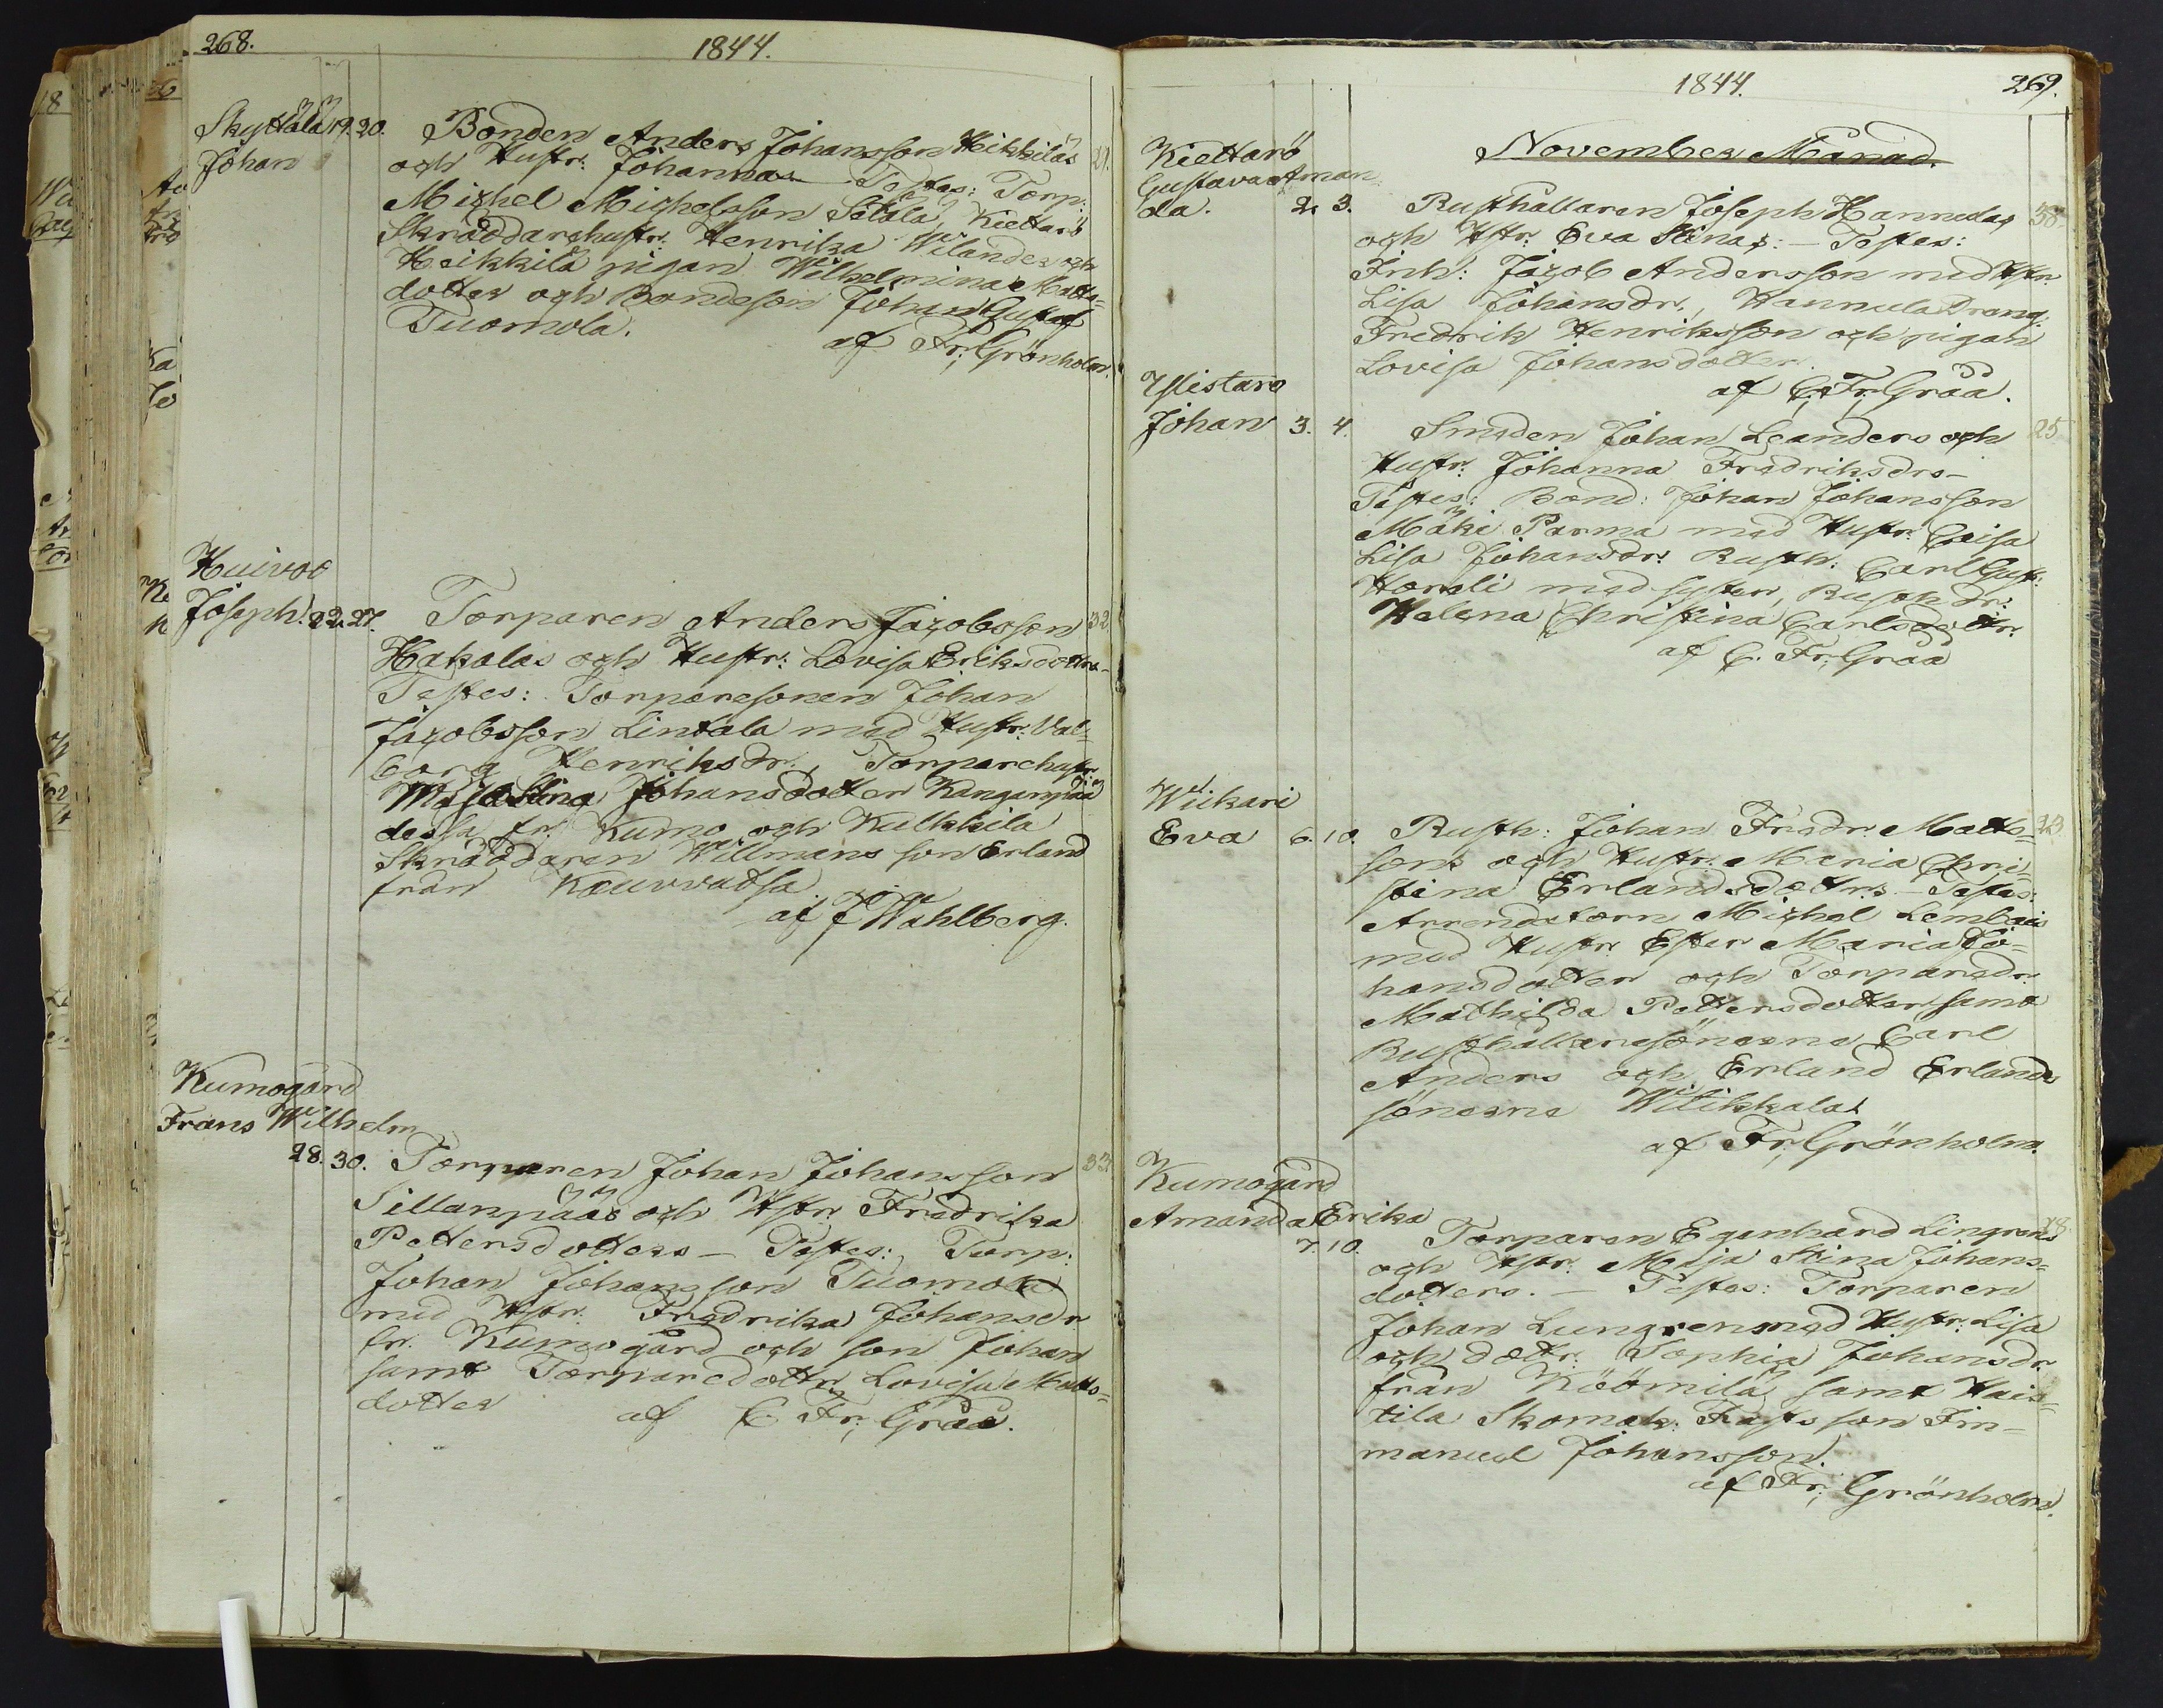 268.
1844.
Skyttälä 19. 20. Bonden Anders Johansson Heikkiläs 21.
Johan
och Hustr: Johannas Testes: Torp:
Michel Michelsson Sätälä, Kiettarö
Skräddarehustr: Henrika Wilander och
Heikkilä pigan Wilhelmina Matts=
dotter och Bondeson Johan Gustaf
Tuomola.
af Fr; Grönholm.
Huivoo
Joseph. 22. 27. Torparen Anders Jacobsson 32.
Hakolas och Hustr: Lovisa Eriksdottrs-
Testes: Torparesonen Johan
Jacobsson Lintala med Hustr: Val=
borg Henriksdr, Torparehustr
Maja Stina Johansdotter Kangenpää
dessa fr. Kumo och Kulkkila
Skräddaren Willmans son Erland
från Kouvvatsa.
af J Wahlberg.
Kumogård
Frans Wilhelm
28. 30. Torparen Johan Johansson 33.
Sillanpääs och Hstr. Fredrika
Pettersdotters - Testes: Torp:
Johan Johansson Tuomola
med Hstr. Fredrika Johansdr
fr. Kumogård och son Johan
samt Torparedottr Lovisa Matts=
dotter
af C. Fr; Gråå.
1844.
269.
November Månad.
Kiettarö
Gustava Aman
da. 2. 3. Rusthållaren Joseph Hannulas 38.
och Hstr. Eva Stinas: - Testes:
Inh: Jacob Andersson med Hstr.
Lisa Johansdr, Hannula Dräng.
Fredrik Henriksson och pigan
Lovisa Johansdotter.
af C; Fr; Gråå.
Ylistaro
Johan 3. 4. Smeden Johan Leanders och 25.
Hustr. Johanna Fredriksdrs-
Testes: Bond: Johan Johansson
Mäki Parma med Hustr. Caisa
Lisa Johansdr. Rusth: Carl Gust:
Harteli med syster, Rusth dr.
Helena Christina Carlsdottr.
af C. Fr; Gråå
Wiikari
Eva 6. 10. Rusth: Johan Fredr. Matts= 23.
sons och Hustr. Maria Chri=
stina Erlandsdottrs - Testes:
Arrendatorn Michel Lembois
med Hustr Ester Maria Jo=
hansdotter och Torparedr.
Mathilda Pettersdotter samt
Rusthållaresönerne Carl
Anders och Erland Erlands
sönerne Wilikkala
af Fr; Grönholm.
Kumogård
Amanda Erika
7. 10. Torparen Egenhard Lingrens 28.
och Hstr. Maja Stina Johans=
dotters. - Testes: Torparen
Johan Lungren med Hustr. Lisa
och dottr. Sophia Johansdr
från Köömilä samt Hais=
tila Skomak: Frasts son Im-
manuel Johansson.
af Fr; Grönholm.